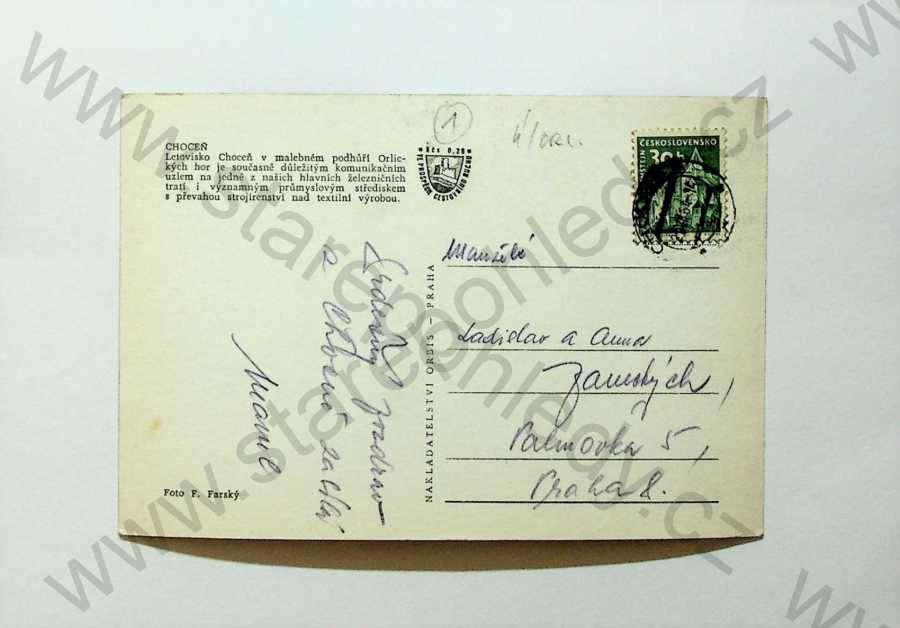 CHOCEŇ
Letovisko Choceň v malebném podhůří Orlic-
kých hor je současně důležitým komunikačním
uzlem na jedné z našich hlavních železničních
tratí i významným průmyslovým střediskem
s převahou strojírenství nad textilní výrobou.
1
Kčs 0,20
VE PROSPĚCH CESTOVNÍHO RUCHU
ČESKOSLOVENSKO
30h
Srdečný pozdrav
z Chocně zasílá
Foto F. Farský
NAKLADATELSTVÍ ORBIS — PRAHA
Manželé
Ladislav a Anna
Palmovka 5,
Praha 8.
www.starepohledy.cz